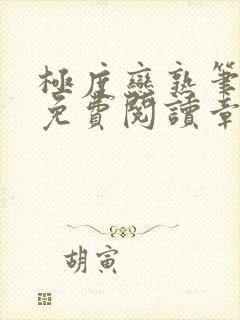 極度戀熟筆
免費閱讀章
胡寅